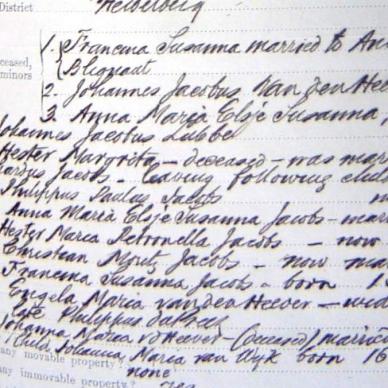 District Heilbron
ceased, 1. Francina Susanna married to An
minors Blignaut
2. Johannes Jacobus Van den Hee
3. Anna Maria Elsje Susanna,
Johannes Jacobus Lubbe
Hester Margrita - deceased - was ma
Jacobs - leaving following chil
Philippus Paulus Jacobs
Anna Maria Elsje Susanna Jacobs - ma
Hester Maria Petronella Jacobs - now
Christian Jacobs - now ma
Francina Susanna Jacobs - born 1
Engela Maria van den Heever - wid
late Philippus du Preez
Johanna Maria vd Heever - (deceased) married
Child, Johanna Maria van Wyk born 18
any movable property? none
any immovable property? yes